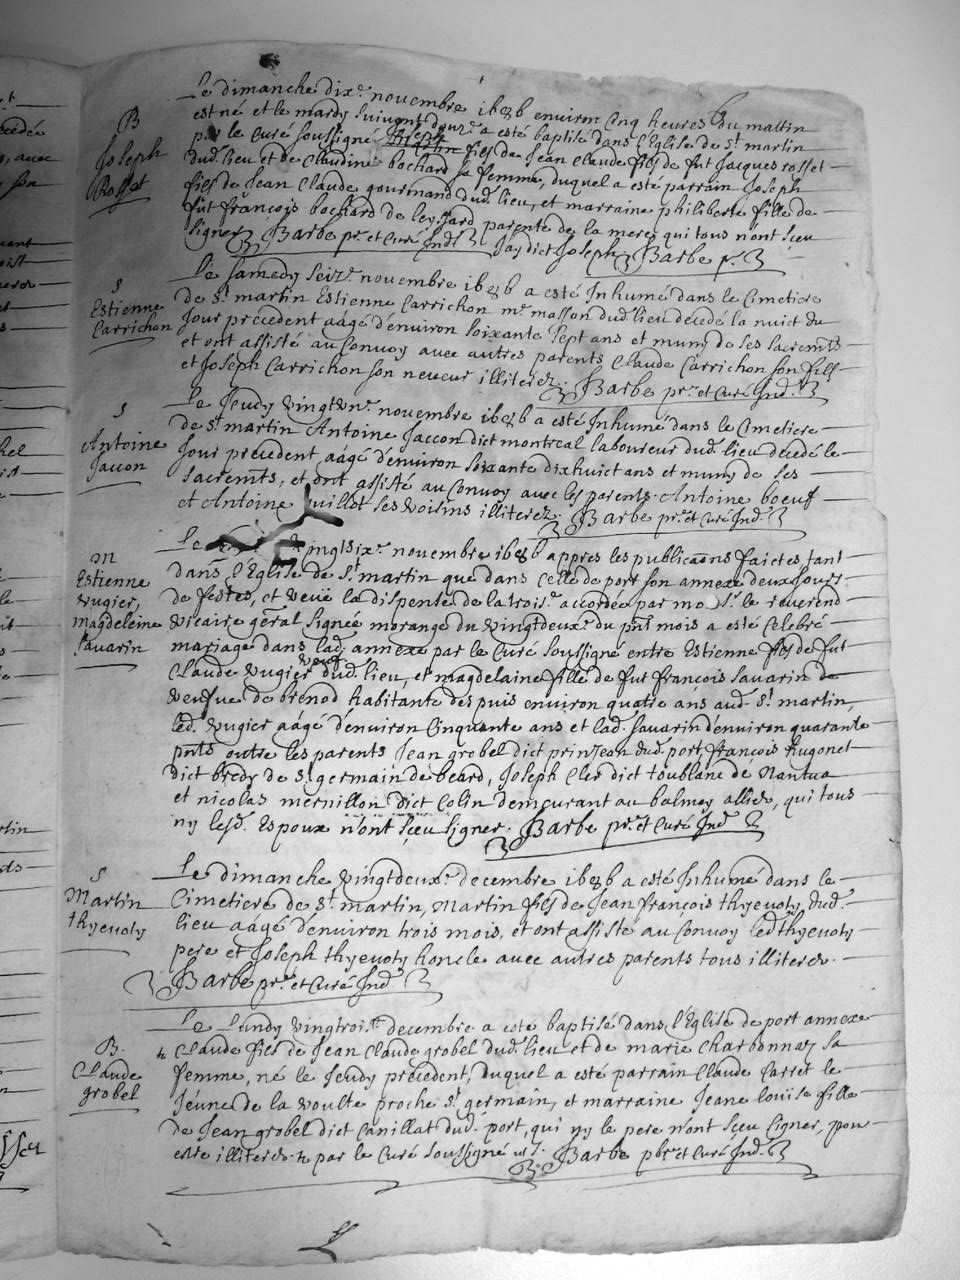 Le dimanche dix.e novembre 1686 environ cinq heures du mattin
B
est né et le mardy suivant douz.e a esté baptisé dans l'Eglise de st martin
Joseph
Rosset
par le Curé soussigné Joseph fils de Jean Claude fils de fut Jacques rosset
dud. lieu et de Claudine bochard sa femme, duquel a esté parrain Joseph
fils de Jean Claude gourmand dud. lieu, et marraine philiberte fille de
fut françois bochard de leyssard parente de la mere qui tous n'ont sçeu
signer Barbe pr. et Curé Ind. J'ay dict Joseph Barbe p.r
S
Estienne
Carrichon
Le samedy seiz.e novembre 1686 a esté Inhumé dans le Cimetiere
de St martin Estienne Carrichon m.e masson dud. lieu decedé la nuict du
Jour precedent aâgé d'environ soixante sept ans et muny de ses sacremts
et ont assisté au Convoy avec autres parents Claude Carrichon son fils
et Joseph Carrichon son neveur illiterez. Barbe pr. et Curé Ind.
S
Antoine
Jaccon
Le Jeudy vingtvn.e novembre 1686 a esté Inhumé dans le Cimetiere
de st martin Antoine Jaccon dict montreal laboureur dud. lieu decedé le
Jour precedent aâgé d'environ soixante dixhuict ans et muny de ses
sacremts, et ont assisté au Convoy avec les parents Antoine boeuf
et Antoine ses voisins illiterez. Barbe pr. et Curé Ind.
M
Estienne
vugier,
Magdeleine
Savarin
Le vingtsix.e novembre 1686 appres les publicaons faictes tant
dans l'Eglise de St martin que dans celle de port son annexe deux Jours
de festes, et veüe la dispense de la trois.e accordée par mo Sr. le reverend
vicaire gñral signée morange du vingtdeux.e du pñt mois a esté Celebré
mariage dans lad. annexe par le Curé soussigné entre Estienne fils de fut
Claude vugier veuf dud. lieu, et magdelaine fille de fut françois savarin de
veufue de brenod habitante despuis environ quatre ans aud. St. martin,
led. vugier aâgé d'environ Cinquante ans et lad. savarin d'environ quarante
pnts outre les parents Jean grobel dict prinJean dud. port françois hugonet
dict bredy de St germain de beard, Joseph Cler dict toublanc de Nantua
et nicolas mernillon dict Colin demeurant au balmay alliés, qui tous
ny lesd. Espoux n'ont sçeu signer. Barbe pr. et Curé Ind.
S
Martin
thyevoty
Le dimanche vingtdeux.e decembre 1686 a esté Inhumé dans le
Cimetiere de St martin, Martin fils de Jean François thyevoty, dud.
lieu aâgé d'environ trois mois, et ont assisté au Convoy led. thyevoty
pere et Joseph thyevoty honcle avec autres parents tous illiterés.
Barbe pr. et Curé Ind
B.
Claude
grobel
Le Lundy vingtrois.e decembre a esté baptisé dans l'Eglise de port annexe
Claude fils de Jean Claude grobel dud. lieu et de marie Charbonnaz sa
femme, né le Jeudy precedent, duquel a esté parrain Claude Carret le
Jeune de la voulte proche St. germain, et marraine Jeane louïse fille
de Jean grobel dict Canillat dud. port, qui ny le pere n'ont sçeu signer, pour
estre illiterés par le Curé soussigné Barbe pbr. et Curé Ind.